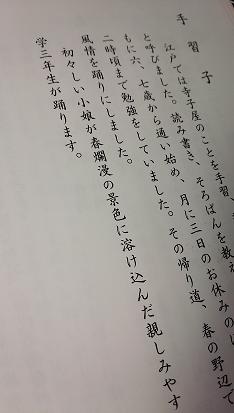 手習子
江戸では寺子屋のことを手習、
と呼びました。読み書き、そろばんを教え
もに六、七歳から通い始め、月に三日のお休みのほ
二時頃まで勉強をしていました。その帰り道、春の野辺で
風情を踊りにしました。
初々しい小娘が春爛漫の景色に溶け込んだ親しみやす
学三年生が踊ります。